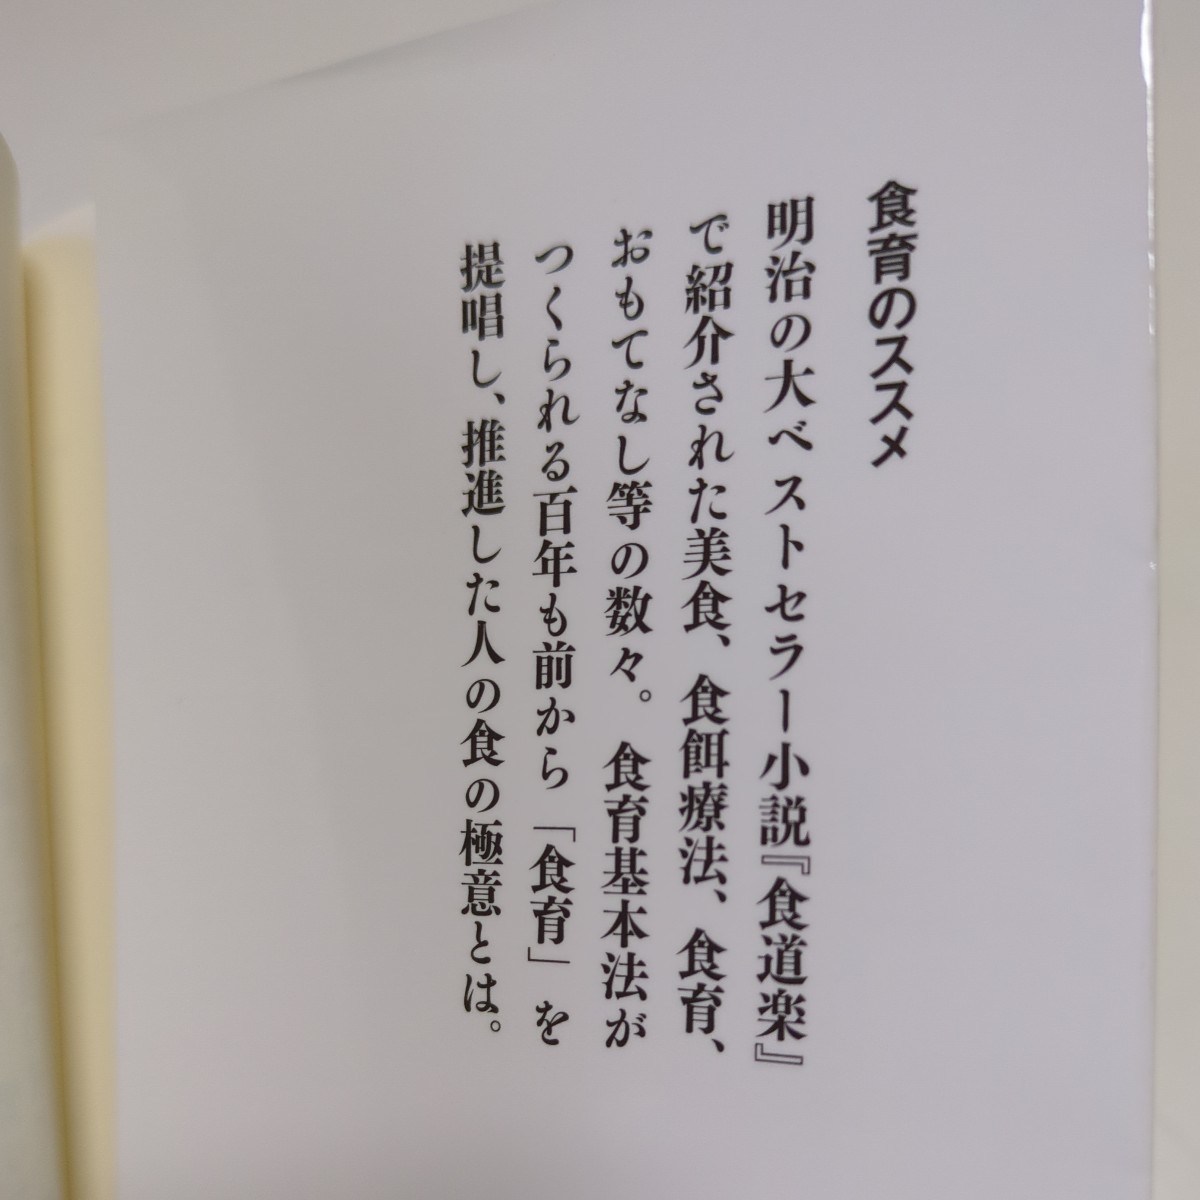 食育のススメ
明治の大ベストセラー小説『食道楽』
で紹介された美食、食餌療法、食育、
おもてなし等の数々。食育基本法が
つくられる百年も前から「食育」を
提唱し、推進した人の食の極意とは。